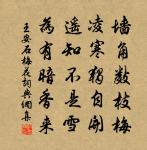 墙角数枝梅
凌寒独自开
遥知不是雪
为有暗香来
王安石梅花词典网集